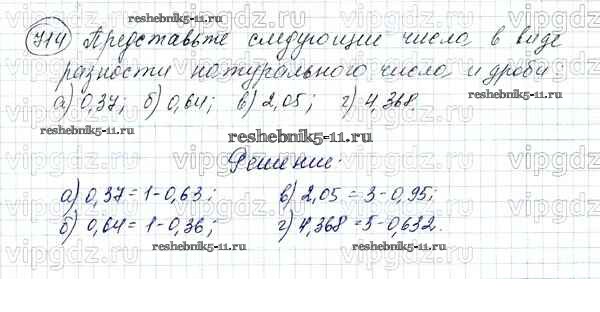 reshebnik5-11.ru
714 Представьте следующие числа в виде
разности натурального числа и дроби
а) 0,37; б) 0,64; в) 2,05; г) 4,368
reshebnik5-11.ru reshebnik5-11.ru
reshebnik5-11.ru
Решение:
а) 0,37=1-0,63; в) 2,05=3-0,95;
б) 0,64=1-0,36; г) 4,368=5-0,632.
reshebnik5-11.ru reshebnik5-11.ru
vipgdz.ru